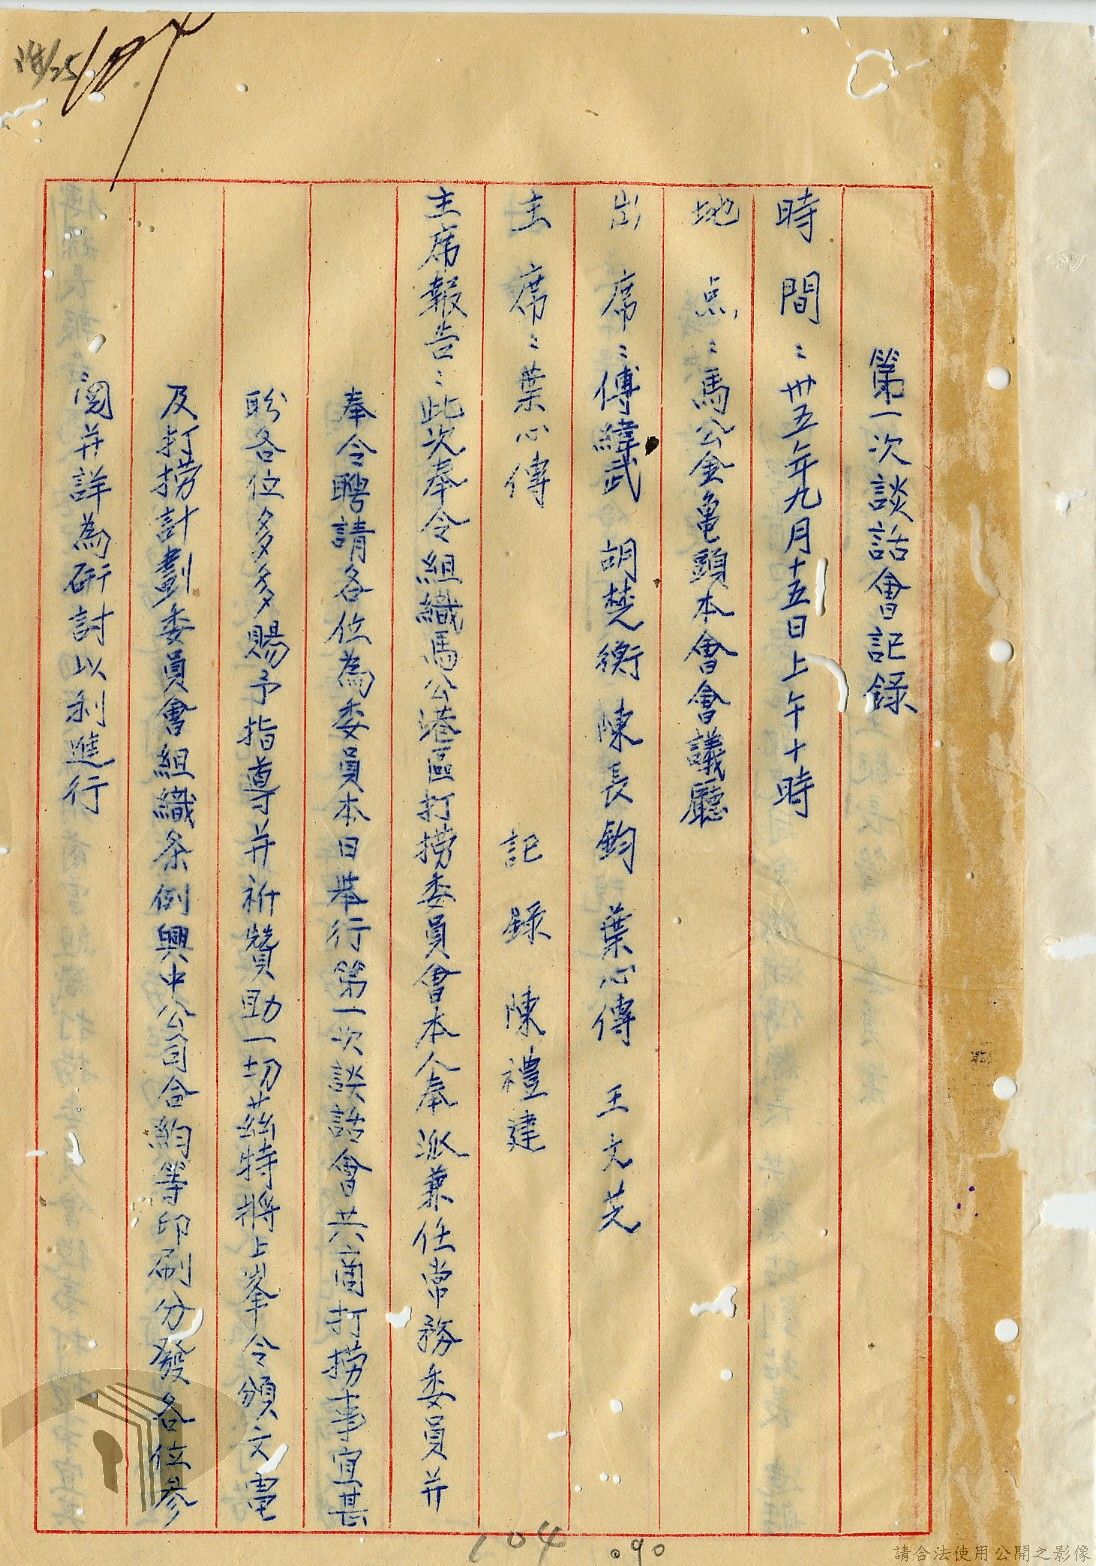 第一次談話會記錄
時間：卅五年九月十五日上午十時
地点：馬公金亀頭本會會議廳
出席：傅緯武 胡楚衡 陳長鈞 葉心傳 王文芝
主席：葉心傳 記錄 陳禮建
主席報告：此次奉令組織馬公港區打撈委員會本人奉派兼任常務委員并
奉令聘請各位為委員本日举行第一次談話會共商打撈事宜甚
盼各位多多賜予指導并祈贊助一切茲特將上峯令頒文電
及打撈計劃委員會組織条例興中公司合約等印刷分發各位參
閱并詳為研討以利進行
104
.90
請合法使用公開之影像